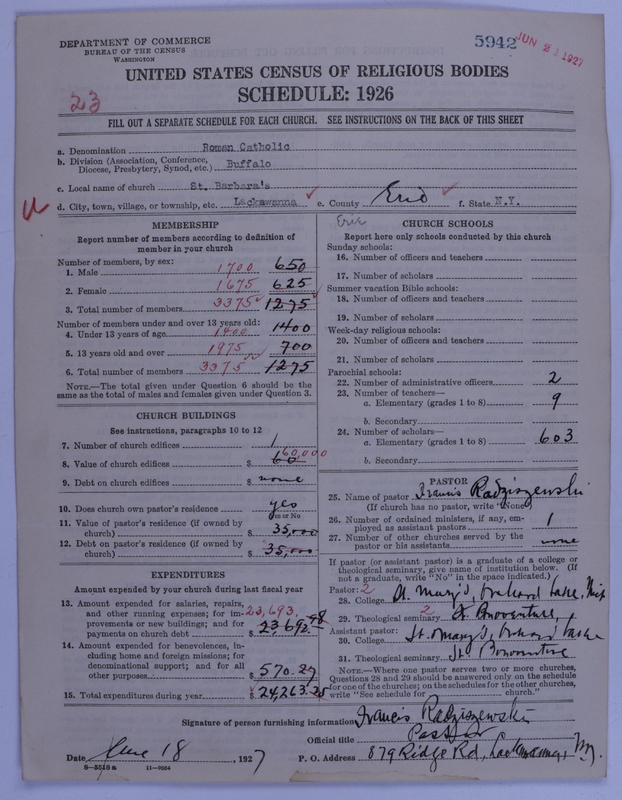 DEPARTMENT OF COMMERCE
BUREAU OF THE CENSUS
WASHINGTON
5942
JUN 21 1927
UNITED STATES CENSUS OF RELIGIOUS BODIES
SCHEDULE: 1926
23
FILL OUT A SEPARATE SCHEDULE FOR EACH CHURCH. SEE INSTRUCTIONS ON THE BACK OF THIS SHEET
a. Denomination Roman Catholic
b. Division (Association, Conference, Diocese, Presbytery, Synod, etc.) Buffalo
c. Local name of church St. Barbara's
d. City, town, village, or township, etc. Lackawanna e. County Erie f. State N.Y.
Erie
MEMBERSHIP
Report number of members according to definition of
member in your church
Number of members, by sex:
1. Male 1700 650
2. Female 1675 625
3. Total number of members 3375 1275
Number of members under and over 13 years old:
4. Under 13 years of age 1400 1400
5. 13 years old and over 1975 700
6. Total number of members 3375 1275
NOTE.—The total given under Question 6 should be the
same as the total of males and females given under Question 3.
CHURCH BUILDINGS
See instructions, paragraphs 10 to 12
7. Number of church edifices 1
8. Value of church edifices $ 60 60,000
9. Debt on church edifices $ none
10. Does church own pastor's residence yes
Yes or No
11. Value of pastor's residence (if owned by
church) $ 35,000
12. Debt on pastor's residence (if owned by
church) $ 35,000
EXPENDITURES
Amount expended by your church during last fiscal year
13. Amount expended for salaries, repairs,
and other running expenses; for im-
provements or new buildings; and for
payments on church debt $ 23,692.98
23,693.
14. Amount expended for benevolences, in-
cluding home and foreign missions; for
denominational support; and for all
other purposes $ 570.27
15. Total expenditures during year $ 24,263.25
CHURCH SCHOOLS
Report here only schools conducted by this church
Sunday schools:
16. Number of officers and teachers
17. Number of scholars
Summer vacation Bible schools:
18. Number of officers and teachers
19. Number of scholars
Week-day religious schools:
20. Number of officers and teachers
21. Number of scholars
Parochial schools:
22. Number of administrative officers 2
23. Number of teachers—
a. Elementary (grades 1 to 8) 9
b. Secondary
24. Number of scholars—
a. Elementary (grades 1 to 8) 603
b. Secondary
PASTOR
25. Name of pastor Francis Radziszewski
(If church has no pastor, write "None")
26. Number of ordained ministers, if any, em-
ployed as assistant pastors 1
27. Number of other churches served by the
pastor or his assistants none
If pastor (or assistant pastor) is a graduate of a college or
theological seminary, give name of institution below. (If
not a graduate, write "No" in the space indicated.)
Pastor: 2
28. College St. Mary's, Orchard Lake, Mich
29. Theological seminary 2 St. Bonaventure,
Assistant pastor:
30. College St. Mary's, Orchard Lake
31. Theological seminary St. Bonaventure
NOTE.—Where one pastor serves two or more churches,
Questions 28 and 29 should be answered only on the schedule
for one of the churches; on the schedules for the other churches,
write "See schedule for church."
Signature of person furnishing information Francis Radziszewski
Official title Pastor
Date June 18, 1927 P. O. Address 879 Ridge Rd, Lackawanna, N.Y.
8—5518a 11—9664